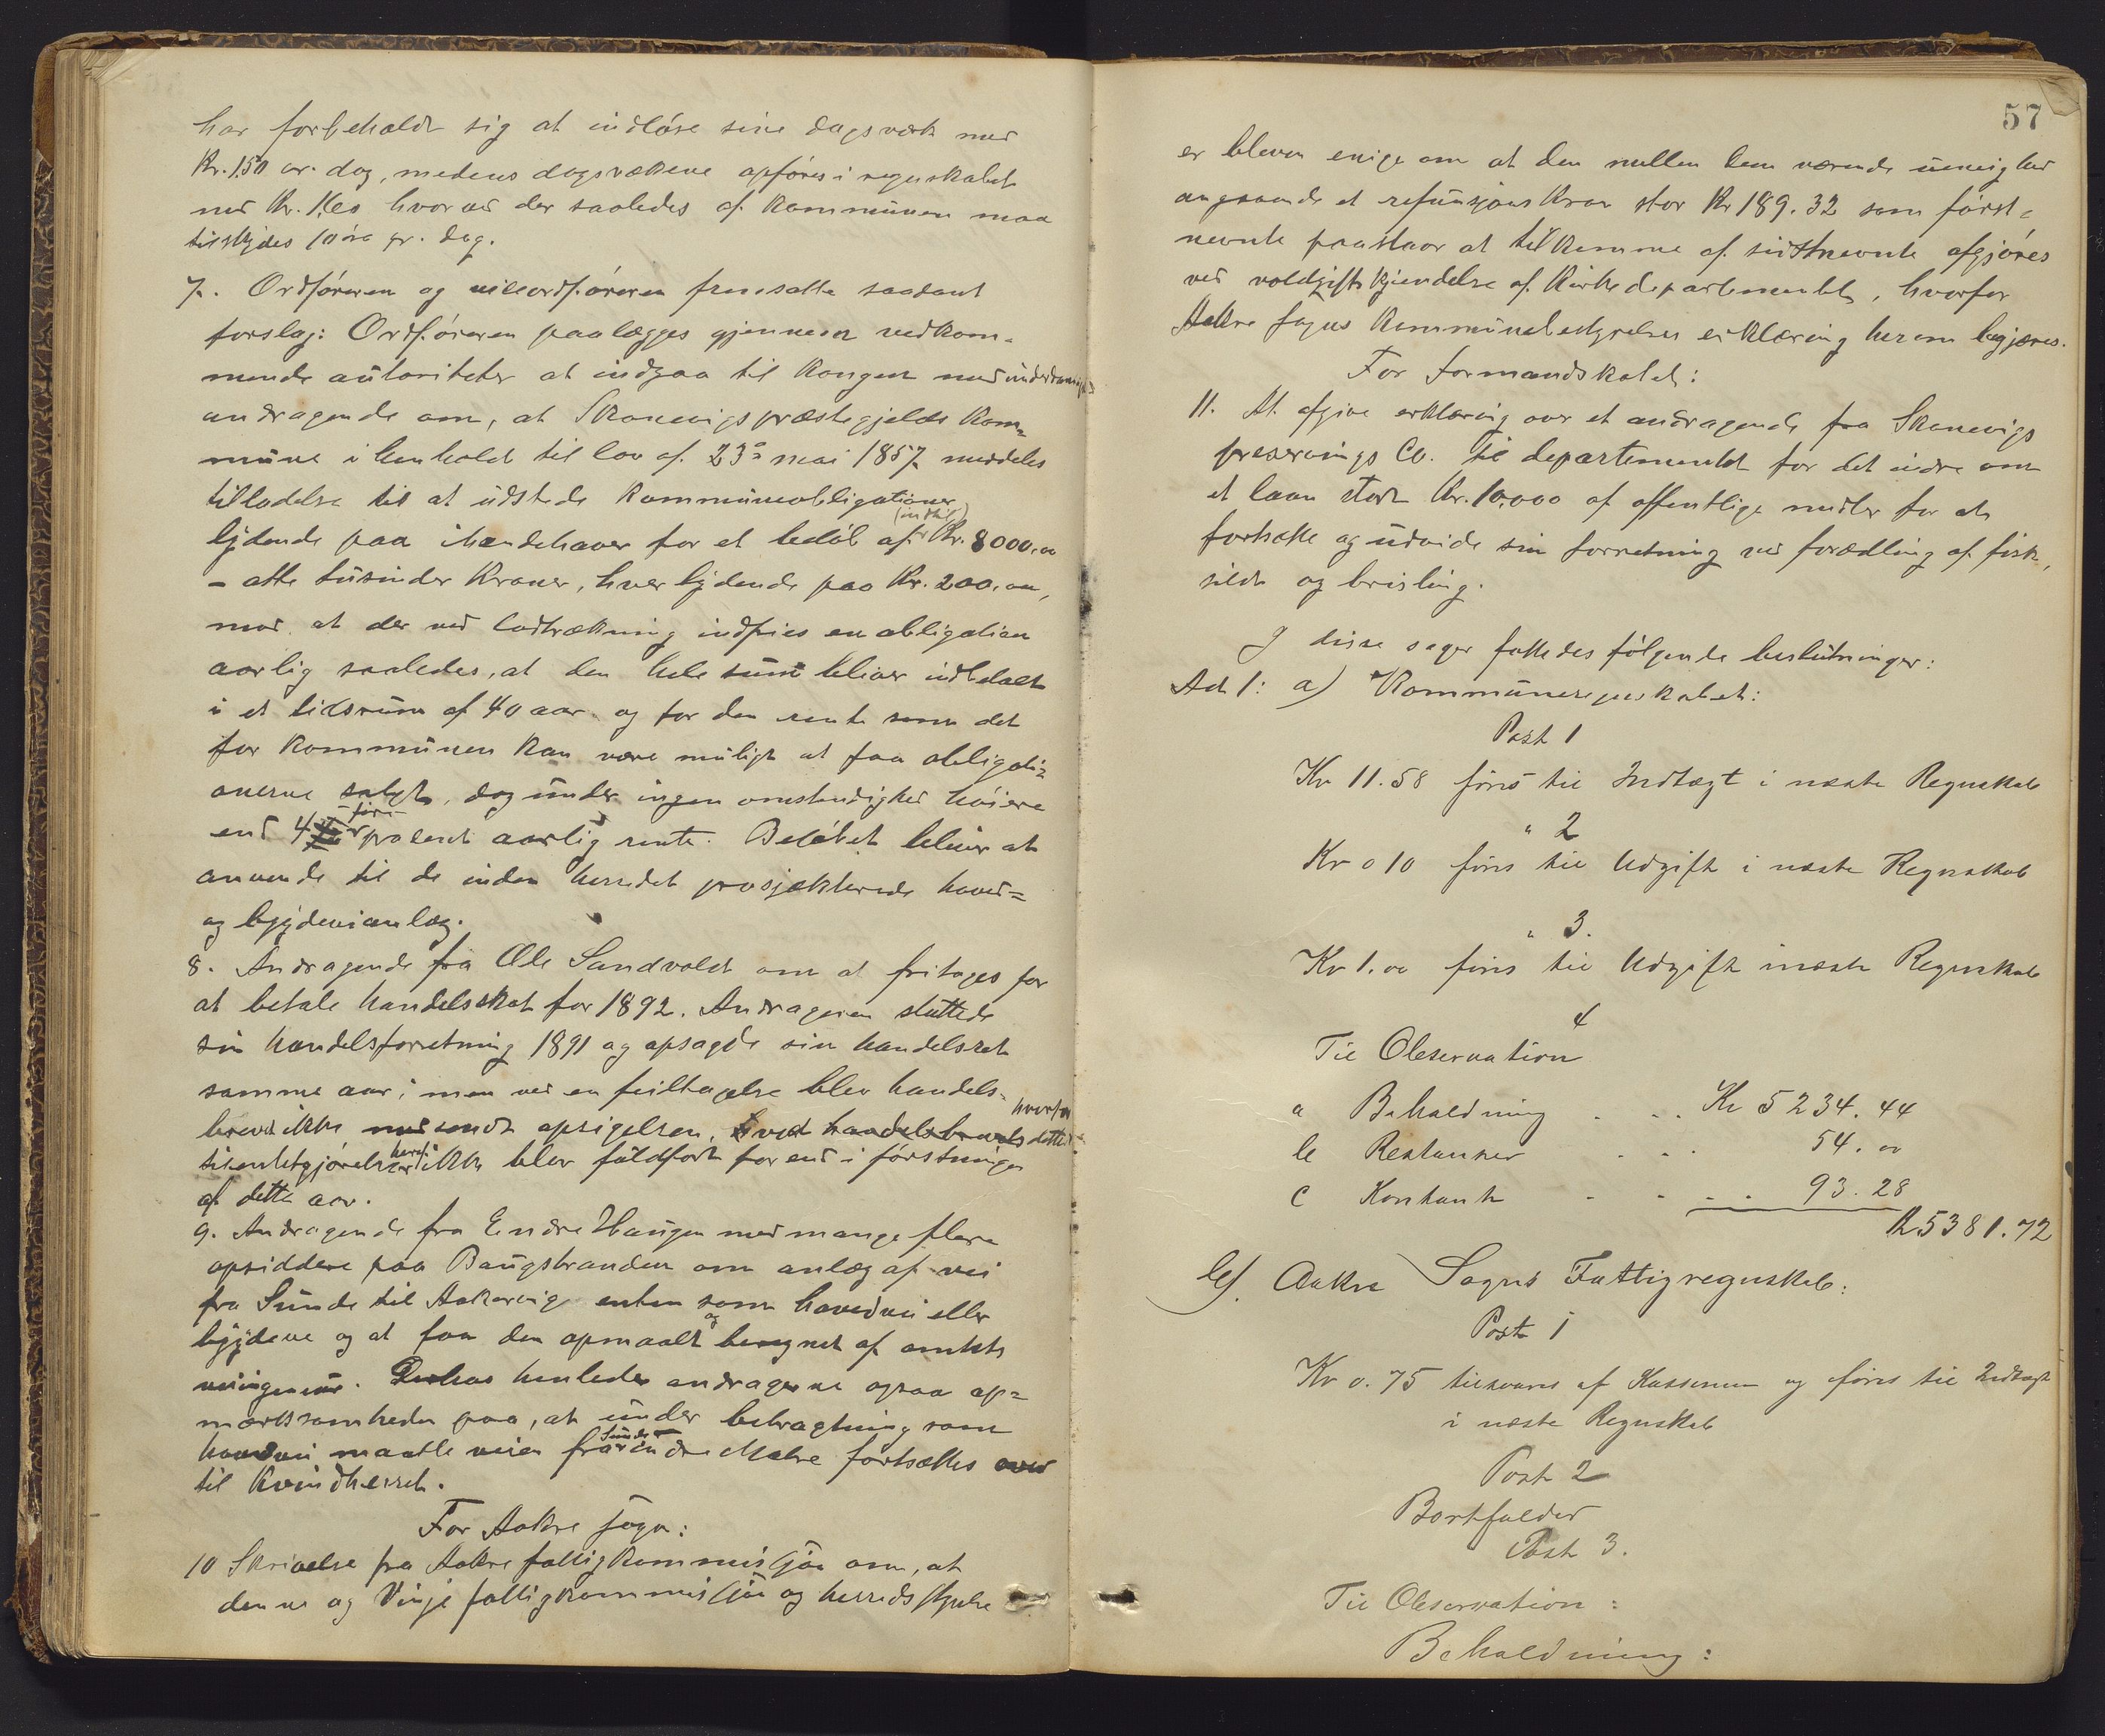 har forbeholdt sig at indløse sine dagsverk med
Kr. 1.50 pr. dag, medens dagsværkene opføres i regnskabet
med Kr. 1.60 hvorved der saaledes af kommunen maa
tilskydes 10 øre pr. dag.
7. Ordføreren og viceordføreren fremsatte saadant
forslag: Ordføreren paalægges gjennem vedkom-
mende autoriteter at indgaa til Kongen med underdanigst
andragende om, at Skonevigs præstegjelds kom=
mune i henhold til lov af 23de mai 1857 meddeles
tilladelse til at udstede kommuneobligationer
(indtil)
lydende paa ihændehaver for et beløb af Kr. 8000.00
- otte tusinder Kroner, hver lydende paa Kr. 200.00,
mod at der ved lodtrækning indfries en obligation
aarlig saaledes, at den hele sum bliver indbetalt
i et tidsrum af 40 aar og for den rente som det
for kommunen kan være muligt at faa obligati=
onerne solgt, dog under ingen omstendighed høiere
- fire -
end 4 procent aarlig rente. Beløbet bliver at
anvende til de inden herredet prosjekterede hoved=
og bygdeveianlæg.
8. Andragende fra Ole Sandvold om at fritages for
at betale handelsskat for 1892. Andrageren sluttede
sin handelsforretning 1891 og opsagde sin handelsret
samme aar; men ved en feiltagelse blev handels-
hvorfor
brevet ikke medsendt opsigelsen, ved handelsbrevets dette
heraf
tilintetgjørelse ikke blev fuldført før end i førstningen
af dette aar.
9. Andragende fra Endre Haugen med mange flere
opsiddere paa Baugstranden om anlæg af vei
fra Sunde til Aakrevig enten som hovedvei eller
og
bygdevei og at faa den opmaalt beregnet af amtets
veiingeniør. Derhos henleder andragerne ogsaa op=
mærksomheden paa, at under betragtning som
Sunde
hovedvei maatte veien fra indre Aakre fortsættes over
til Kvindherred.
For Aakre sogn:
10 Skrivelse fra Aakre fattigkommissjon om, at
denne og Vinje fattigkommissjon og herredsstyrelse
57
er bleven enige om at den mellem dem værende uenighed
angaaende et refunsjons krav stor Kr 189.32 som først=
nevnte paastaar at tilkomme af sidstnevnte afgjøres
ved voldgiftskjendelse af Kirkedepartementet, hvorfor
Aakre sogns kommunebestyrelses erklæring herom begjæres.
For formandskabet:
11. At afgive erklæring over et andragende fra Skonevigs
preservings Co. til departementet for det indre om
et laan stort Kr. 10,000 af offentlige midler for at
fortsætte og udvide sin forretning ved forædling af fisk,
sild og brisling.
I disse sager fattedes følgende beslutninger:
Ad 1: a) Kommuneregnskabet:
Post 1
Kr 11.58 føres til Indtægt i næste Regnskab
" 2
Kr 0 10 føres til Udgift i næste Regnskab
" 3.
Kr 1.00 føres til Udgift i næste Regnskab
4
Til Observation
a Beholdning . . . Kr 5234.44
b Restanser . . . 54.00
c Kontant . . . . 93.28
Kr 5381.72
b). Aakre Sogns Fattigregnskab:
Post 1
Kr 0.75 tilsvares af Kassereren og føres til Indtægt
i næste Regnskab
Post 2
Bortfalder
Post 3.
Til Observation:
Beholdning: